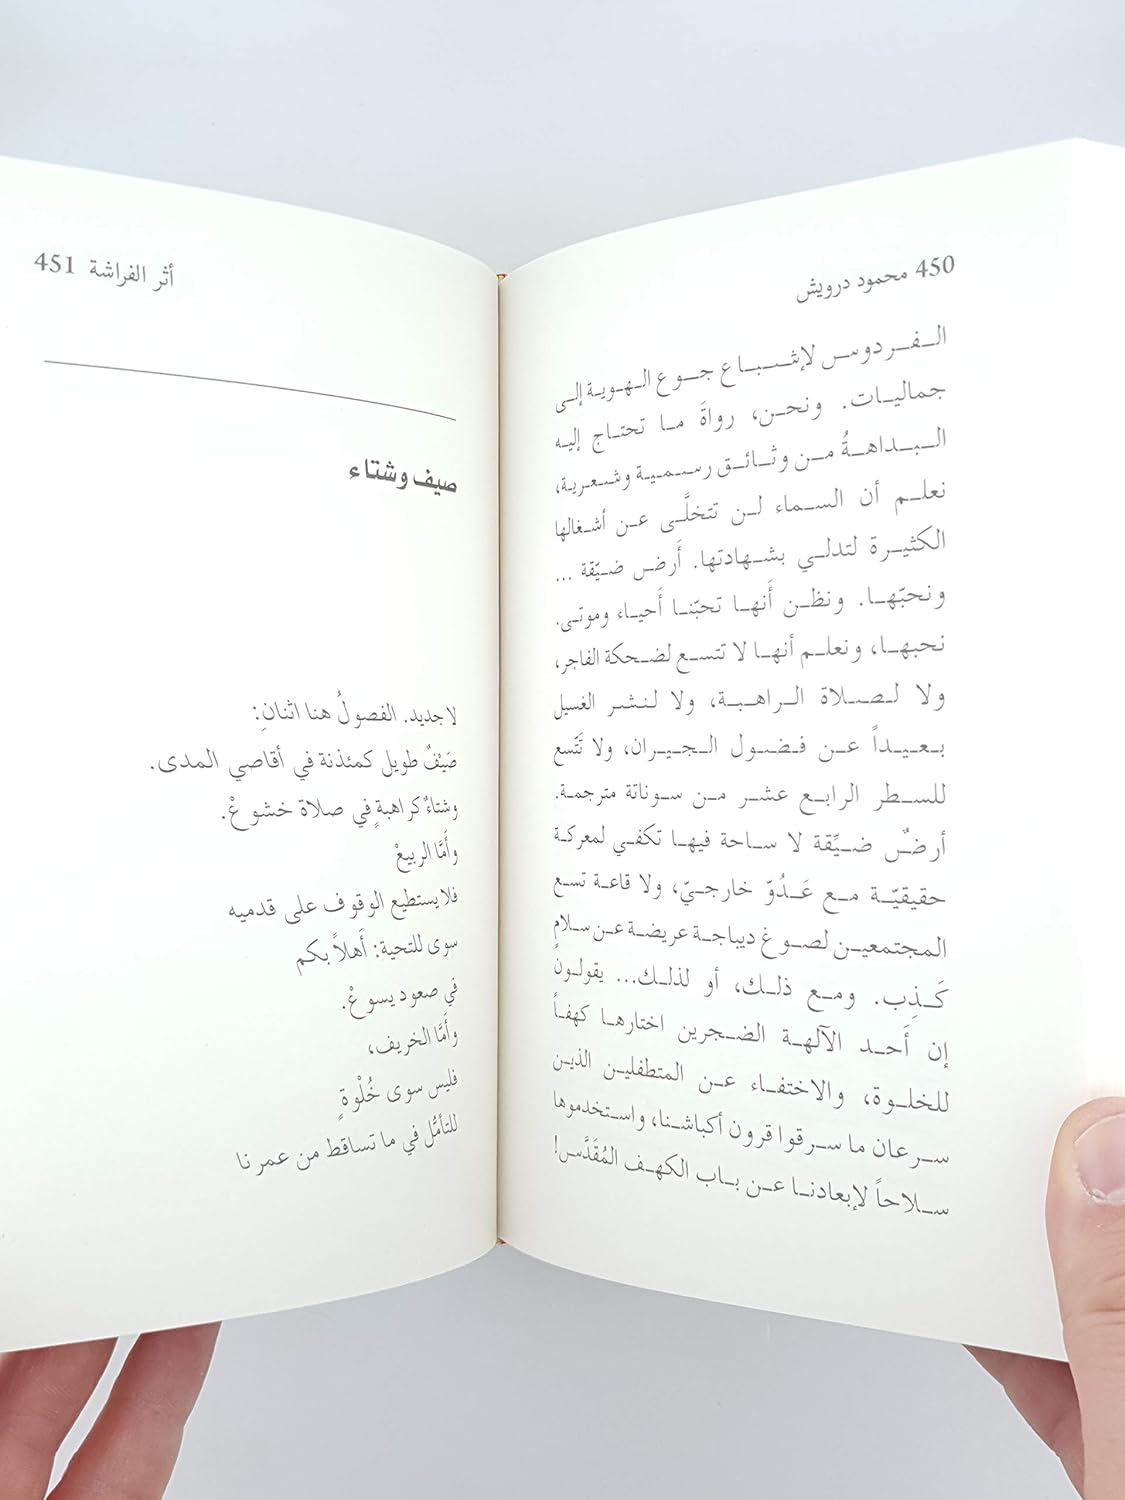 450 محمود درويش
الـفـردوس لإشـبـاع جـوع الـهـويـة إلـى
جماليـات. ونحـن، رواةَ مـا تحتـاج إليـه
الـبـداهـةُ مـن وثـائـق رسـمـيـة وشـعـريـة،
نعلـم أن السـماء لـن تتخلَّـى عـن أشـغالها
الكثيـرة لتدلـي بشـهادتها. أَرض ضـيّقة ...
ونحبّهـا. ونظـن أَنهـا تحبّنـا أَحيـاء وموتـى.
نحبهـا، ونعلـم أنهـا لا تتسـع لضـحكة الفاجر،
ولا لـصـلاة الـراهـبـة، ولا لـنـشـر الغسيل
بـعـيـداً عـن فـضـول الـجـيـران، ولا تَتّسع
للسـطر الرابـع عشـر مـن سـوناتة مترجمـة.
أرضٌ ضيِّقة لا ساحة فيها تكفي لمعركة
حقيقيّـة مـع عَـدُوّ خارجـيّ، ولا قاعـة تسـع
المجتمعيـن لصـوغ ديباجـة عريضـة عـن سـلامٍ
كَـذِب. ومـع ذلـك، أو لذلـك... يقولـون
إن أَحـد الآلهـة الضـجرين اختارهـا كهفـاً
للخلـوة، والاختفـاء عـن المتطفليـن الذيـن
سـرعان ما سـرقوا قرون أكباشـنا، واسـتخدموها
سـلاحاً لإبعادنـا عـن بـاب الكهـف المُقَدَّس!
أثر الفراشة 451
صيف وشتاء
لا جديد. الفصولُ هنا اثنانِ:
صَيْفٌ طويل كمئذنة في أقاصي المدى.
وشتاءٌ كراهبةٍ في صلاة خشوعْ.
وأَمَّا الربيعْ
فلا يستطيع الوقوف على قدميه
سوى للتحية: أَهلاً بكم
في صعود يسوعْ.
وأَمَّا الخريف،
فليس سوى خُلْوةٍ
للتأمُّل في ما تساقط من عمرنا